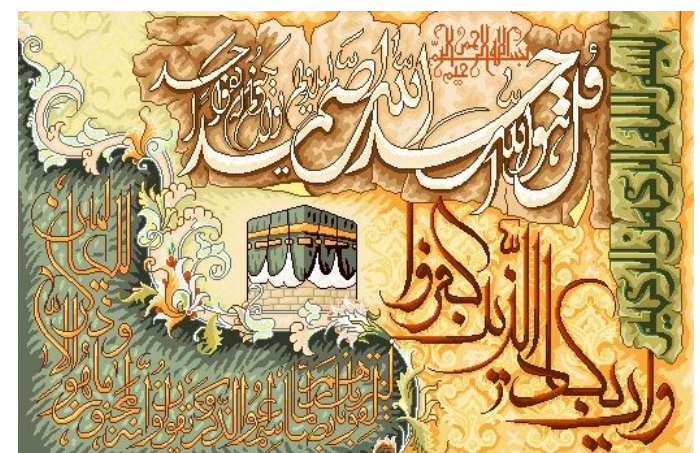 بسم الله الرحمن الرحيم
بسم الله الرحمن الرحيم
قل هو الله احد الله الصمد لم يلد ولم يولد ولم يكن له كفوا احد
وان يكاد الذين كفروا
ليزلقونك بابصارهم لما سمعوا الذكر ويقولون انه لمجنون وما هو الا
ذكر
للعالمين